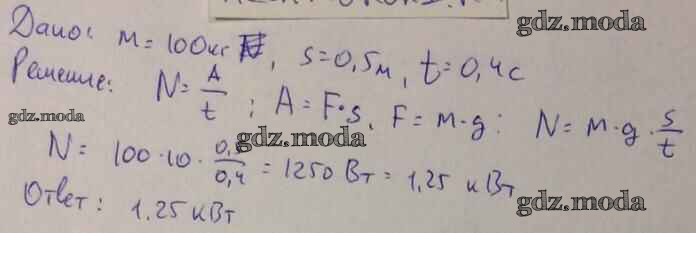 gdz.moda
Дано: m = 100 кг, s = 0,5 м, t = 0,4 с
gdz.moda
Решение: N = A/t ; A = F·s, F = m·g ; N = m·g · s/t
gdz.moda
gdz.moda
N = 100·10 · 0,5/0,4 = 1250 Вт = 1,25 кВт
Ответ: 1.25 кВт
gdz.moda